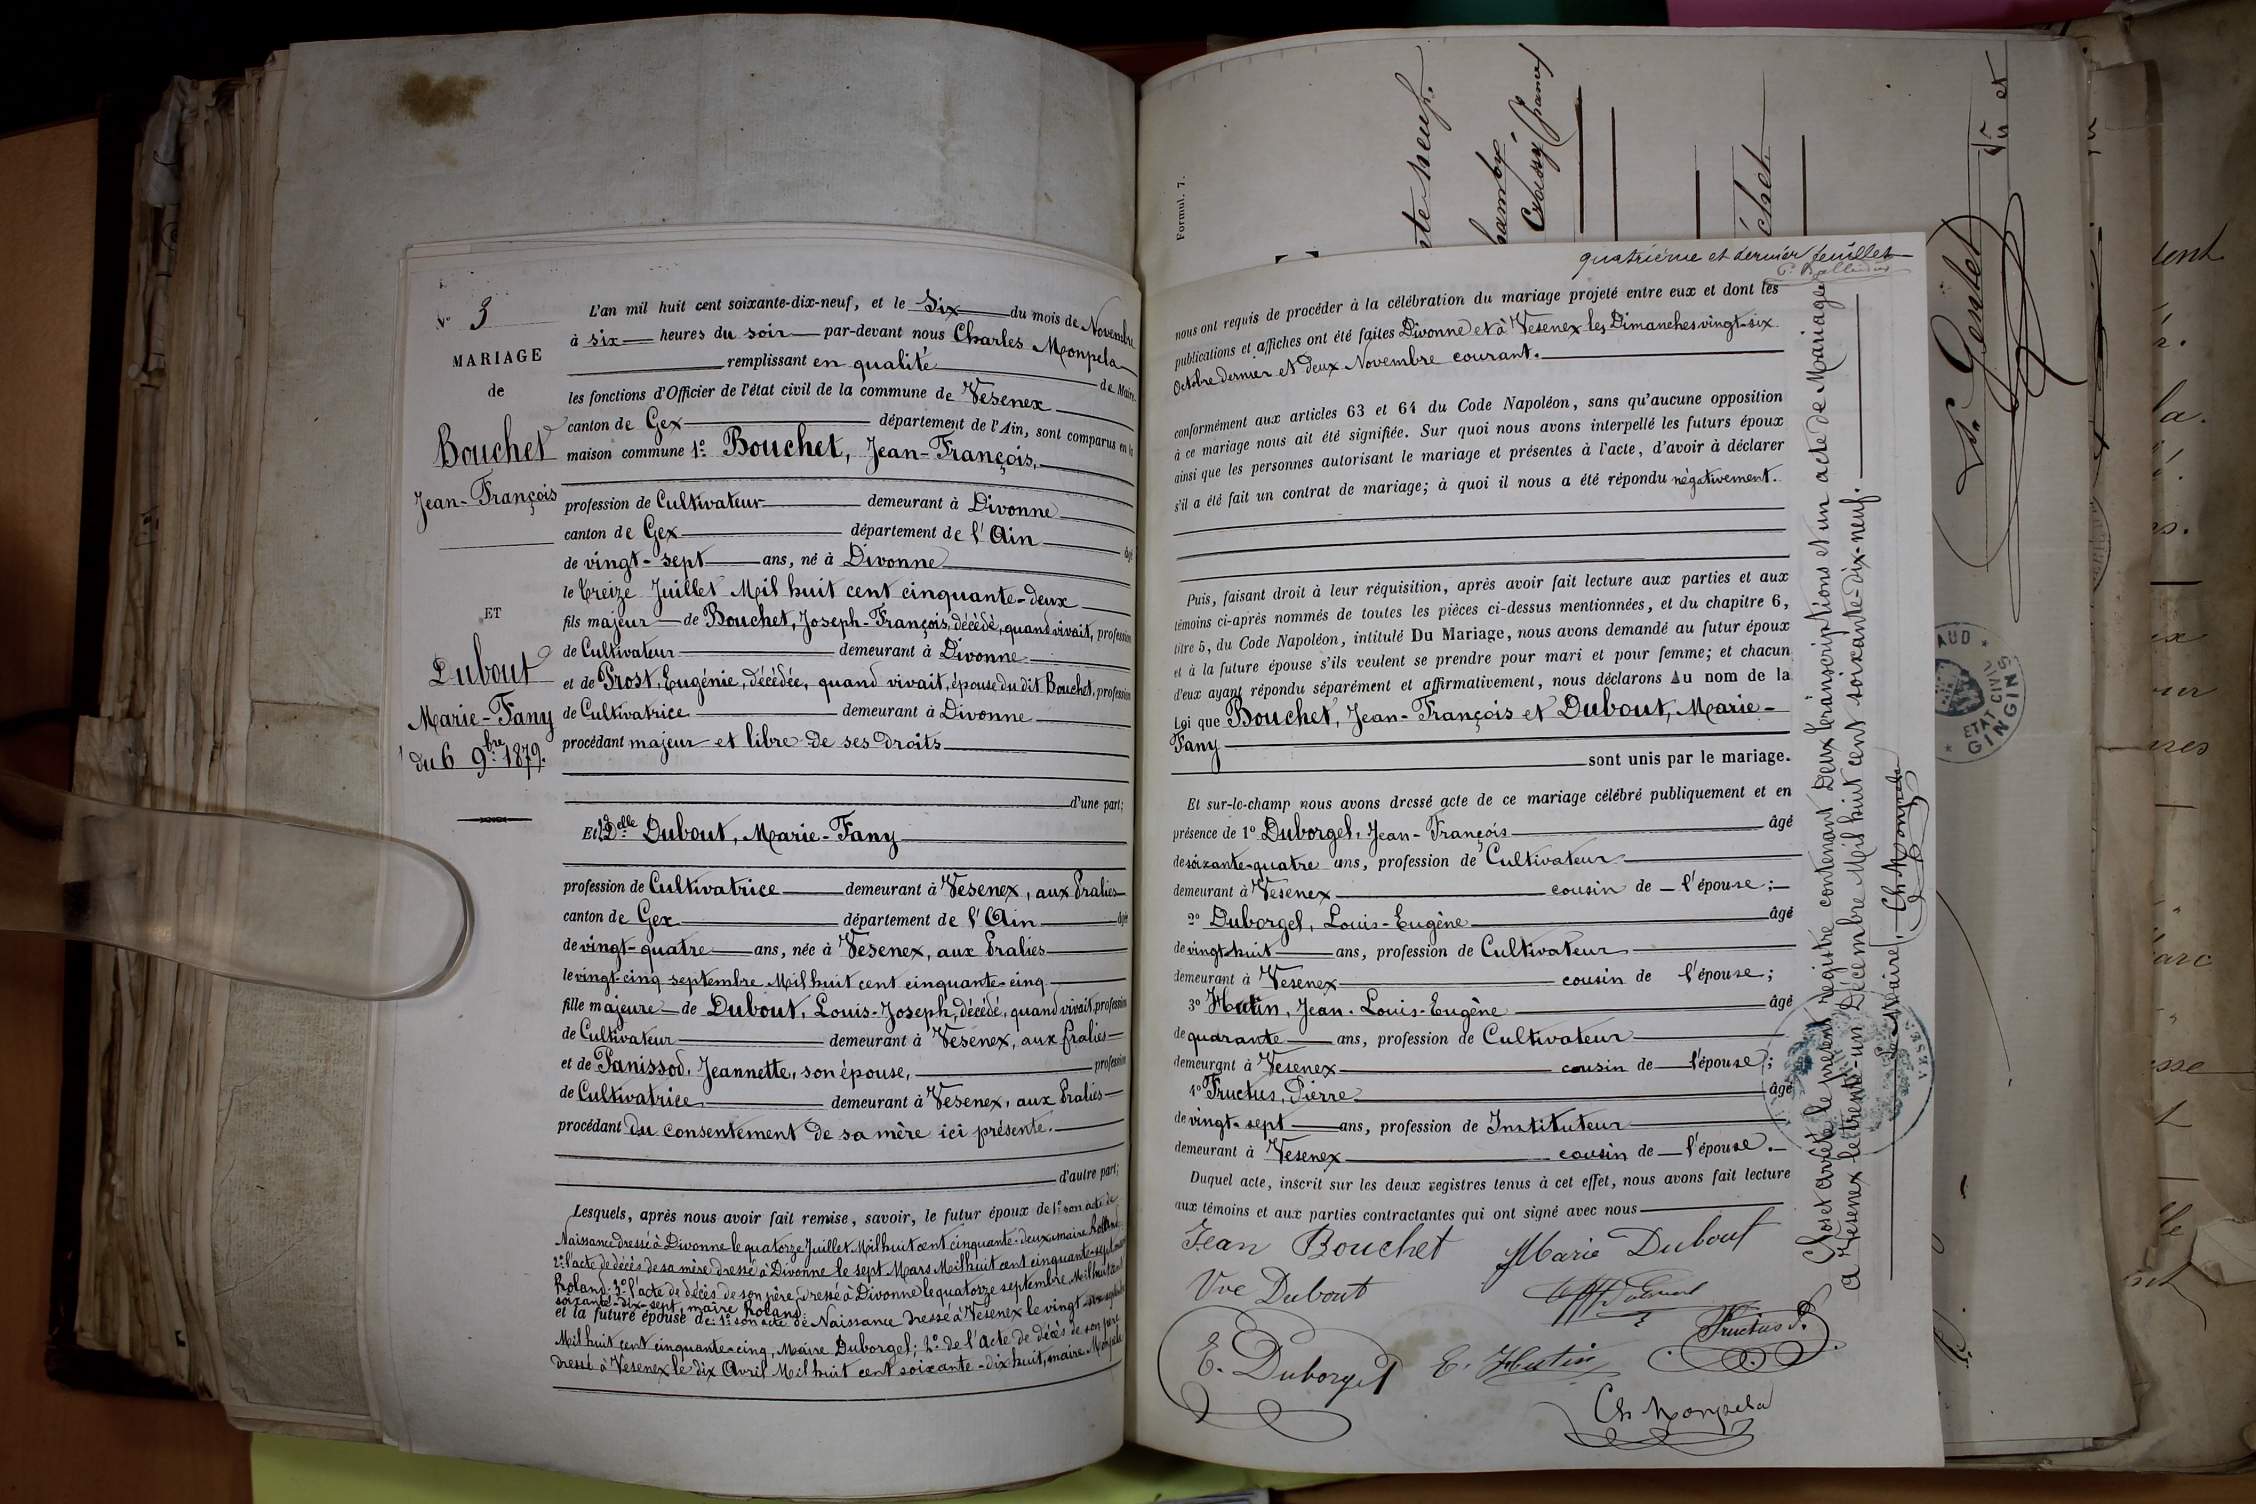 N° 3
MARIAGE
de
Bouchet
Jean-François
ET
Dubout
Marie-Fany
du 6 9bre 1879.
L'an mil huit cent soixante-dix-neuf, et le Six du mois de Novembre
à six heures du soir par-devant nous Charles Monpela
remplissant en qualité de Maire
les fonctions d'Officier de l'état civil de la commune de Vesenex
canton de Gex département de l'Ain, sont comparus en la
maison commune 1° Bouchet, Jean-François,
profession de Cultivateur demeurant à Divonne
canton de Gex département de l'Ain âgé
de vingt-sept ans, né à Divonne
le Treize Juillet Mil huit cent cinquante-deux
fils majeur de Bouchet, Joseph-François, décédé, quand vivait, profession
de Cultivateur demeurant à Divonne
et de Prost, Eugénie, décédée, quand vivait, épouse du dit Bouchet, profession
de Cultivatrice demeurant à Divonne
procédant majeur et libre de ses droits
d'une part;
Et 2° Delle Dubout, Marie-Fany
profession de Cultivatrice demeurant à Vesenex, aux Pralies
canton de Gex département de l'Ain âgée
de vingt-quatre ans, née à Vesenex, aux Pralies
le vingt-cinq septembre Mil huit cent cinquante-cinq
fille majeure de Dubout, Louis-Joseph, décédé, quand vivait, profession
de Cultivateur demeurant à Vesenex, aux Pralies
et de Panissod, Jeannette, son épouse, profession
de Cultivatrice demeurant à Vesenex, aux Pralies
procédant du consentement de sa mère ici présente.
d'autre part;
Lesquels, après nous avoir fait remise, savoir, le futur époux de 1° son acte de
Naissance dressé à Divonne le quatorze Juillet Mil huit cent cinquante-deux, maire Rolland
2° l'acte de décès de sa mère dressé à Divonne le sept Mars Mil huit cent cinquante-sept, maire
Roland. 3° l'acte de décès de son père, dressé à Divonne le quatorze septembre Mil huit cent
soixante-dix-sept, maire Roland.
et la future épouse de: 1° son acte de Naissance dressé à Vesenex le vingt septembre
Mil huit cent cinquante-cinq, Maire Duborgel; 2° de l'Acte de décès de son père
dressé à Vesenex le dix Avril Mil huit cent soixante-dix huit, maire Monpela
Formul. 7.
quatrième et dernier feuillet
nous ont requis de procéder à la célébration du mariage projeté entre eux et dont les
publications et affiches ont été faites Divonne et à Vesenex les Dimanches vingt-six
Octobre dernier et deux Novembre courant.
conformément aux articles 63 et 64 du Code Napoléon, sans qu'aucune opposition
à ce mariage nous ait été signifiée. Sur quoi nous avons interpellé les futurs époux
ainsi que les personnes autorisant le mariage et présentes à l'acte, d'avoir à déclarer
s'il a été fait un contrat de mariage; à quoi il nous a été répondu négativement.
Puis, faisant droit à leur réquisition, après avoir fait lecture aux parties et aux
témoins ci-après nommés de toutes les pièces ci-dessus mentionnées, et du chapitre 6,
titre 5, du Code Napoléon, intitulé Du Mariage, nous avons demandé au futur époux
et à la future épouse s'ils veulent se prendre pour mari et pour femme; et chacun
d'eux ayant répondu séparément et affirmativement, nous déclarons Au nom de la
Loi que Bouchet, Jean-François et Dubout, Marie-
Fany
sont unis par le mariage.
Et sur-le-champ nous avons dressé acte de ce mariage célébré publiquement et en
présence de 1° Duborgel, Jean-François âgé
de soixante-quatre ans, profession de Cultivateur
demeurant à Vesenex cousin de l'épouse;
2° Duborgel, Louis-Eugène âgé
de vingt-huit ans, profession de Cultivateur
demeurant à Vesenex cousin de l'épouse;
3° Hutin, Jean-Louis-Eugène âgé
de quarante ans, profession de Cultivateur
demeurant à Vesenex cousin de l'épouse;
4° Fructus, Pierre âgé
de vingt-sept ans, profession de Instituteur
demeurant à Vesenex cousin de l'épouse.
Duquel acte, inscrit sur les deux registres tenus à cet effet, nous avons fait lecture
aux témoins et aux parties contractantes qui ont signé avec nous
Jean Bouchet Marie Dubout
Vve Dubout
Fructus P.
E. Duborgel E. Hutin
Ch Monpela
Clos et arrêté le présent registre contenant Deux transcriptions et un acte de Mariage
à Vesenex le trente-un Décembre Mil huit cent soixante-dix-neuf.
Le Maire, Ch Monpela
Gentet
Vu et
ETAT CIVIL
GINGINS